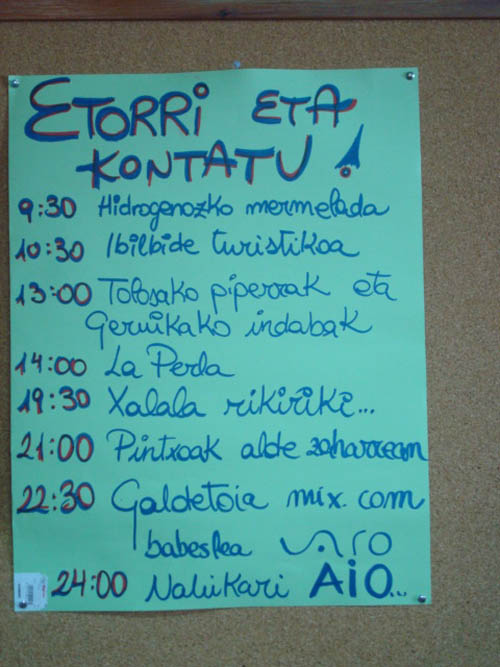 ETORRI ETA
KONTATU!
9:30 Hidrogenozko mermelada
10:30 Ibilbide turistikoa
13:00 Tolosako piperrak eta
Gernikako indabak
14:00 La Perla
19:30 Xalala rikiriki...
21:00 Pintxoak alde zaharrean
22:30 Galdetoia mix.com
babeslea
24:00 Nahikari AIO...